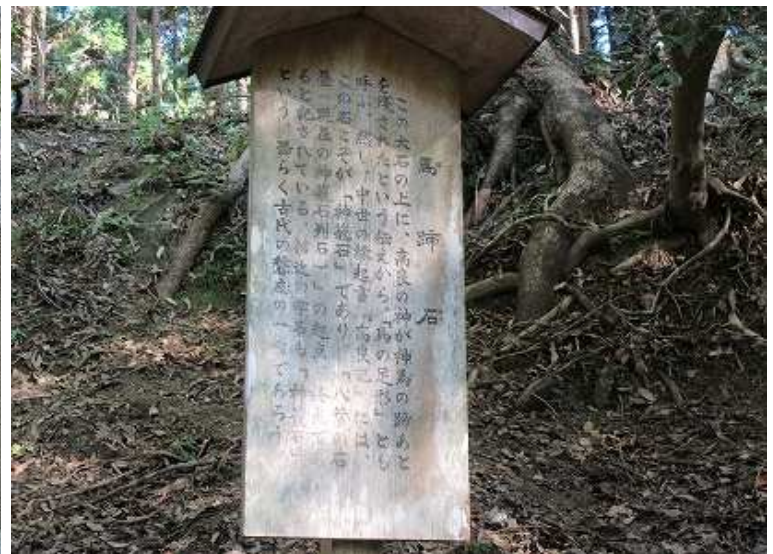 馬蹄石
この大石の上に、高良の神が神馬の蹄あと
を残されたという伝えから、「馬の足形」とも
呼ぶ。然し、中世の縁起書「高良記」には、
この石こそが、「神籠石」であり、「八葉の石
畳
の神籠石
」の起点
ると記されている。
という。恐らく古代の祭祀の
であろう。